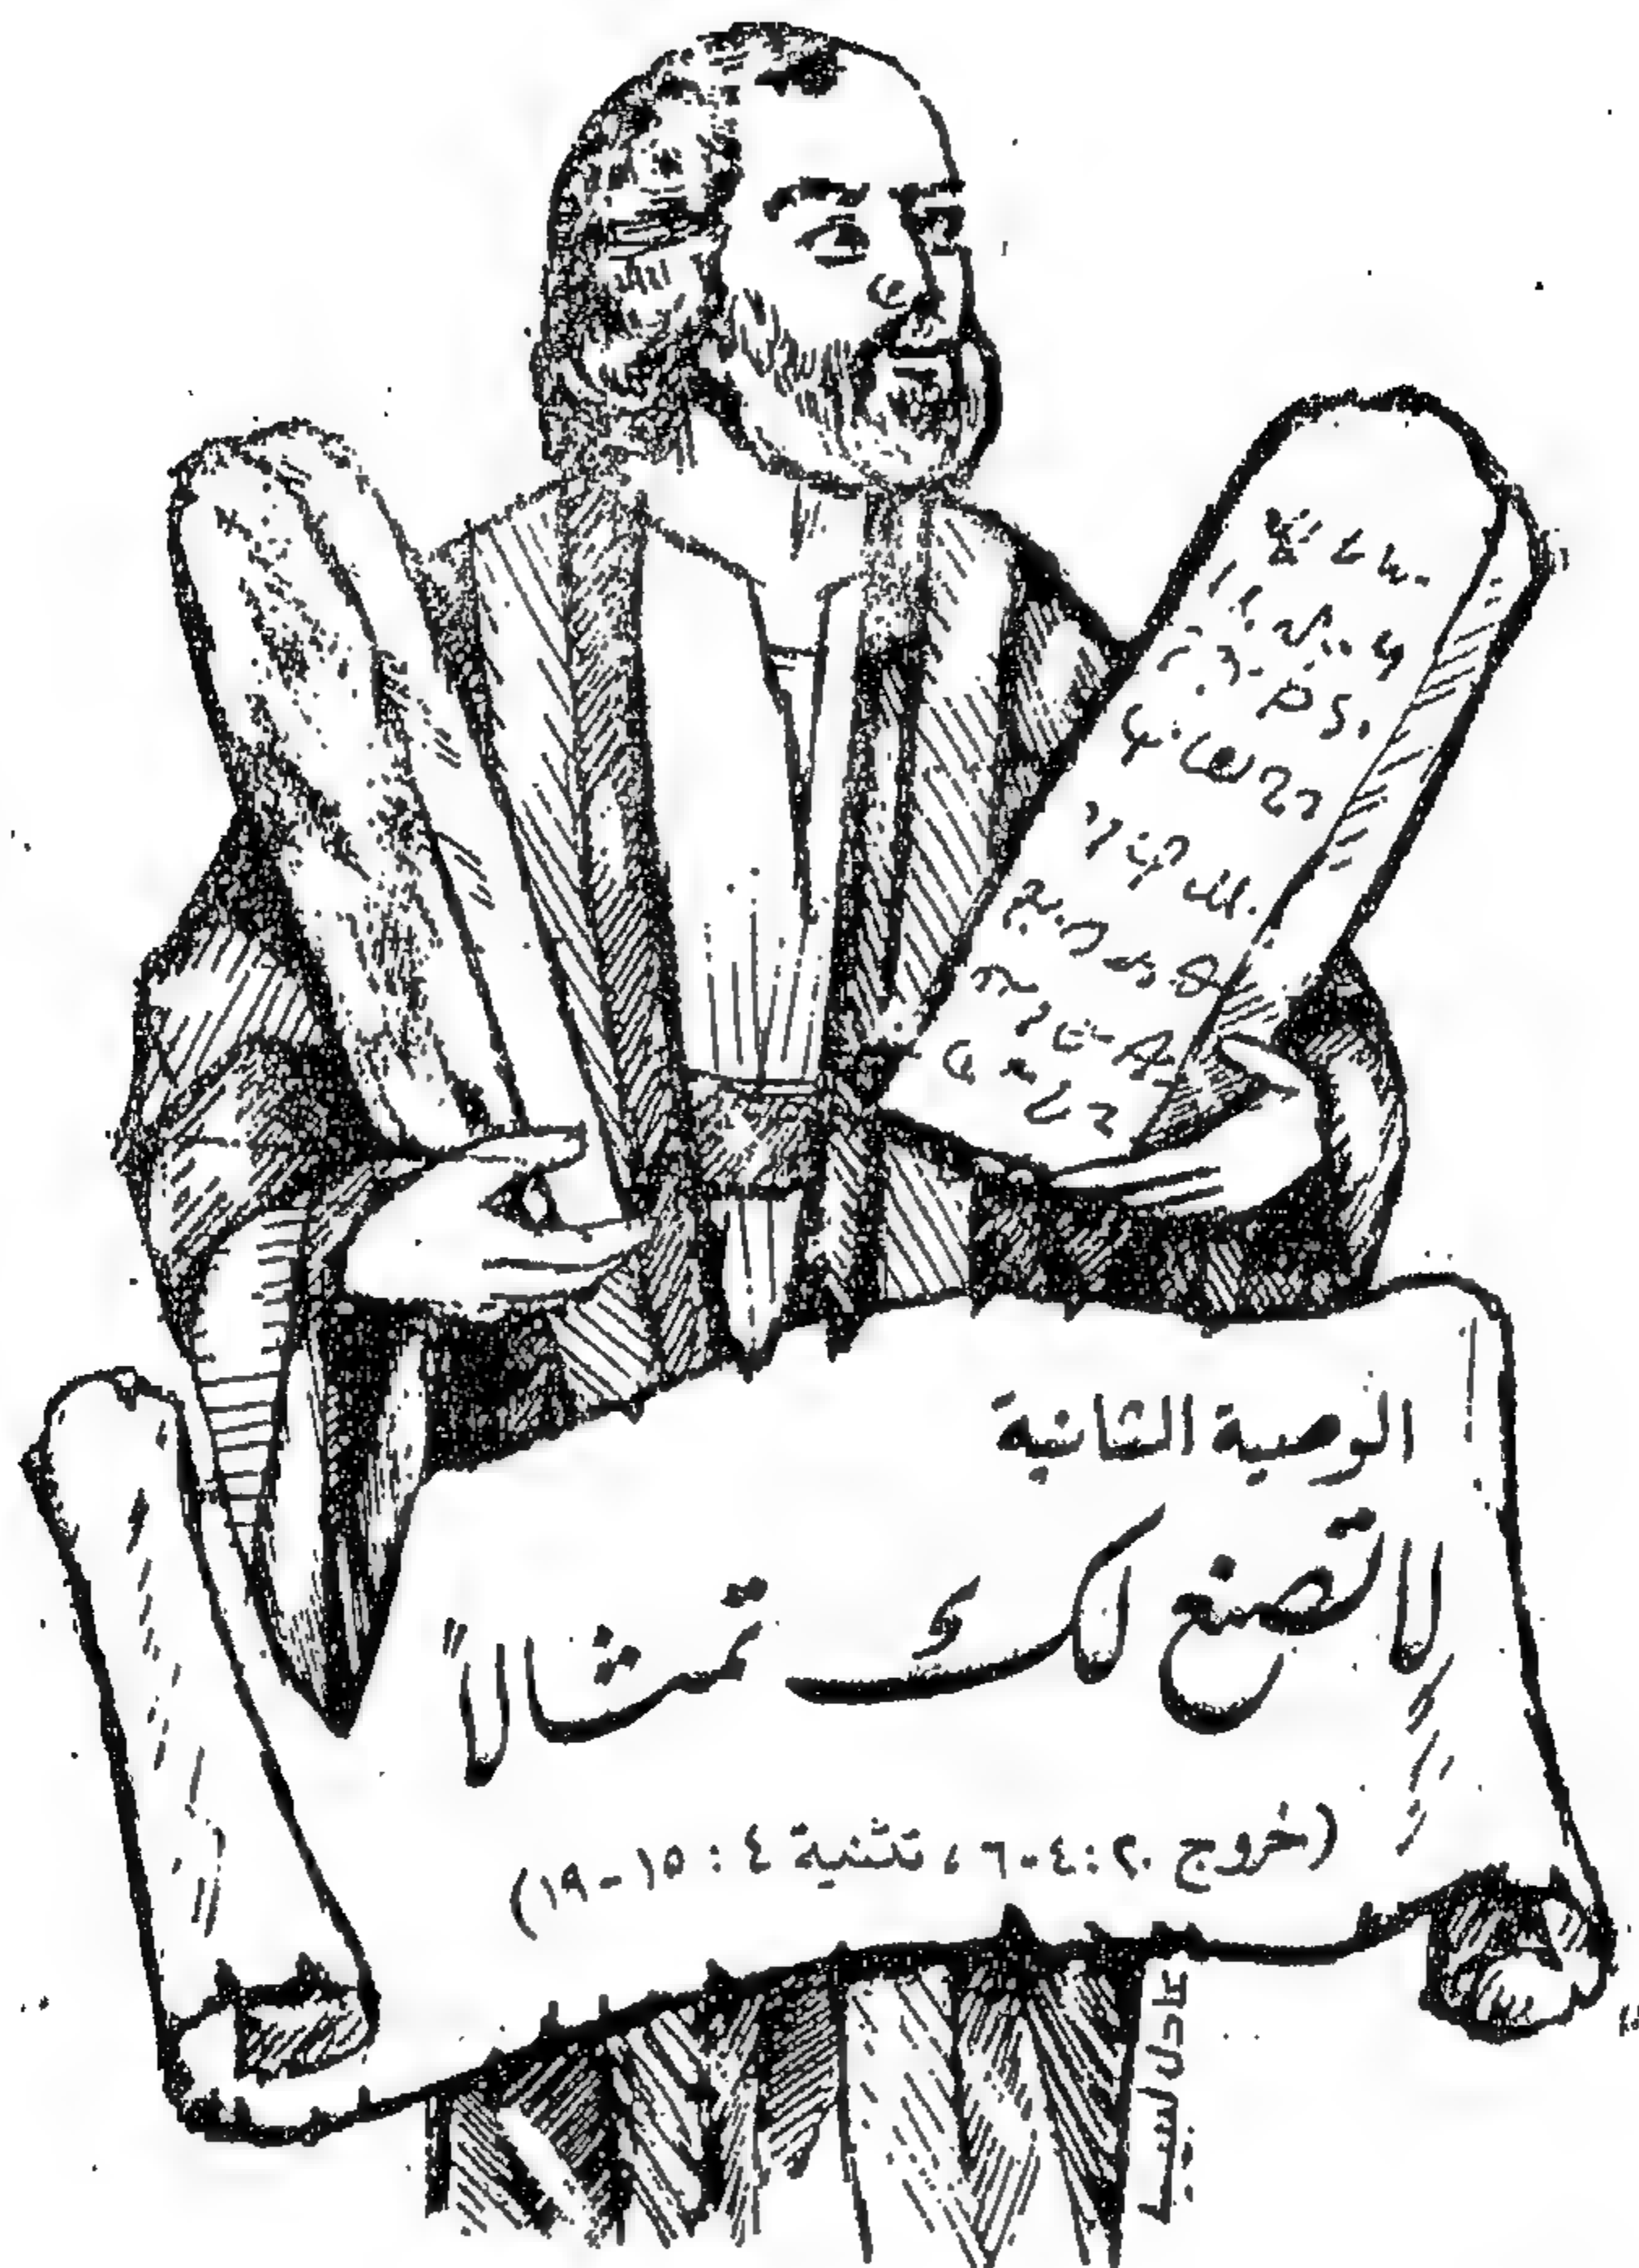 الوصية الثانية
لا تصنع لك تمثالاً
(خروج ٢٠:٤-٦، تثنية ٤:١٥-١٩)
عادل نسيم